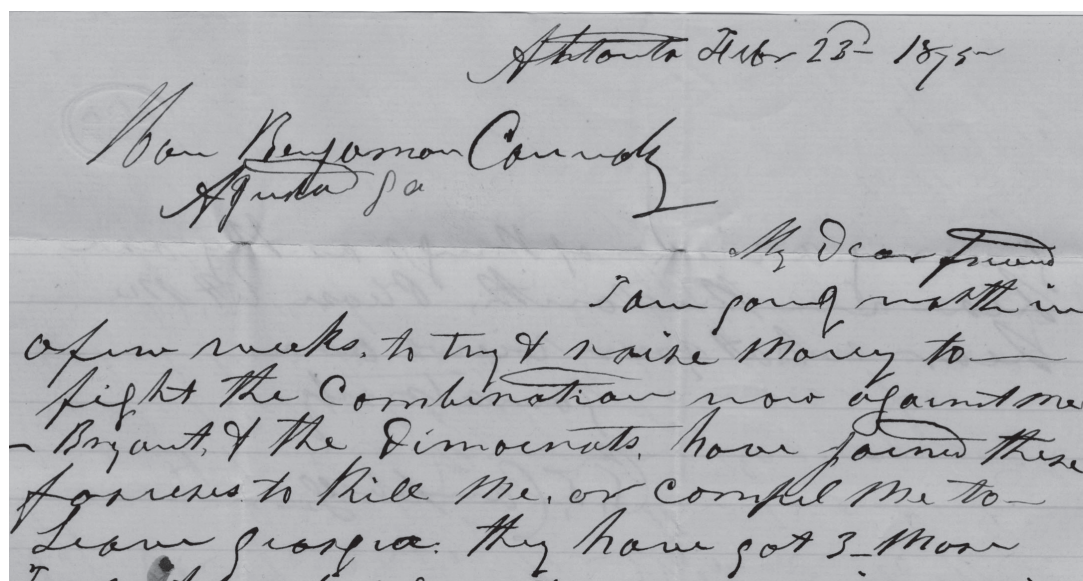 Atlanta Febr 23 - 1875
Hon Benjamon Connoly
Agusta ga
My Dear friend
I am going north in
a few weeks. to try & raise Money to
fight the Combination now against me
- Bryant, & the Dimocrats. have joined these
forseses to Kill Me. or compel Me to
Leave georgia. they have got 3 - More